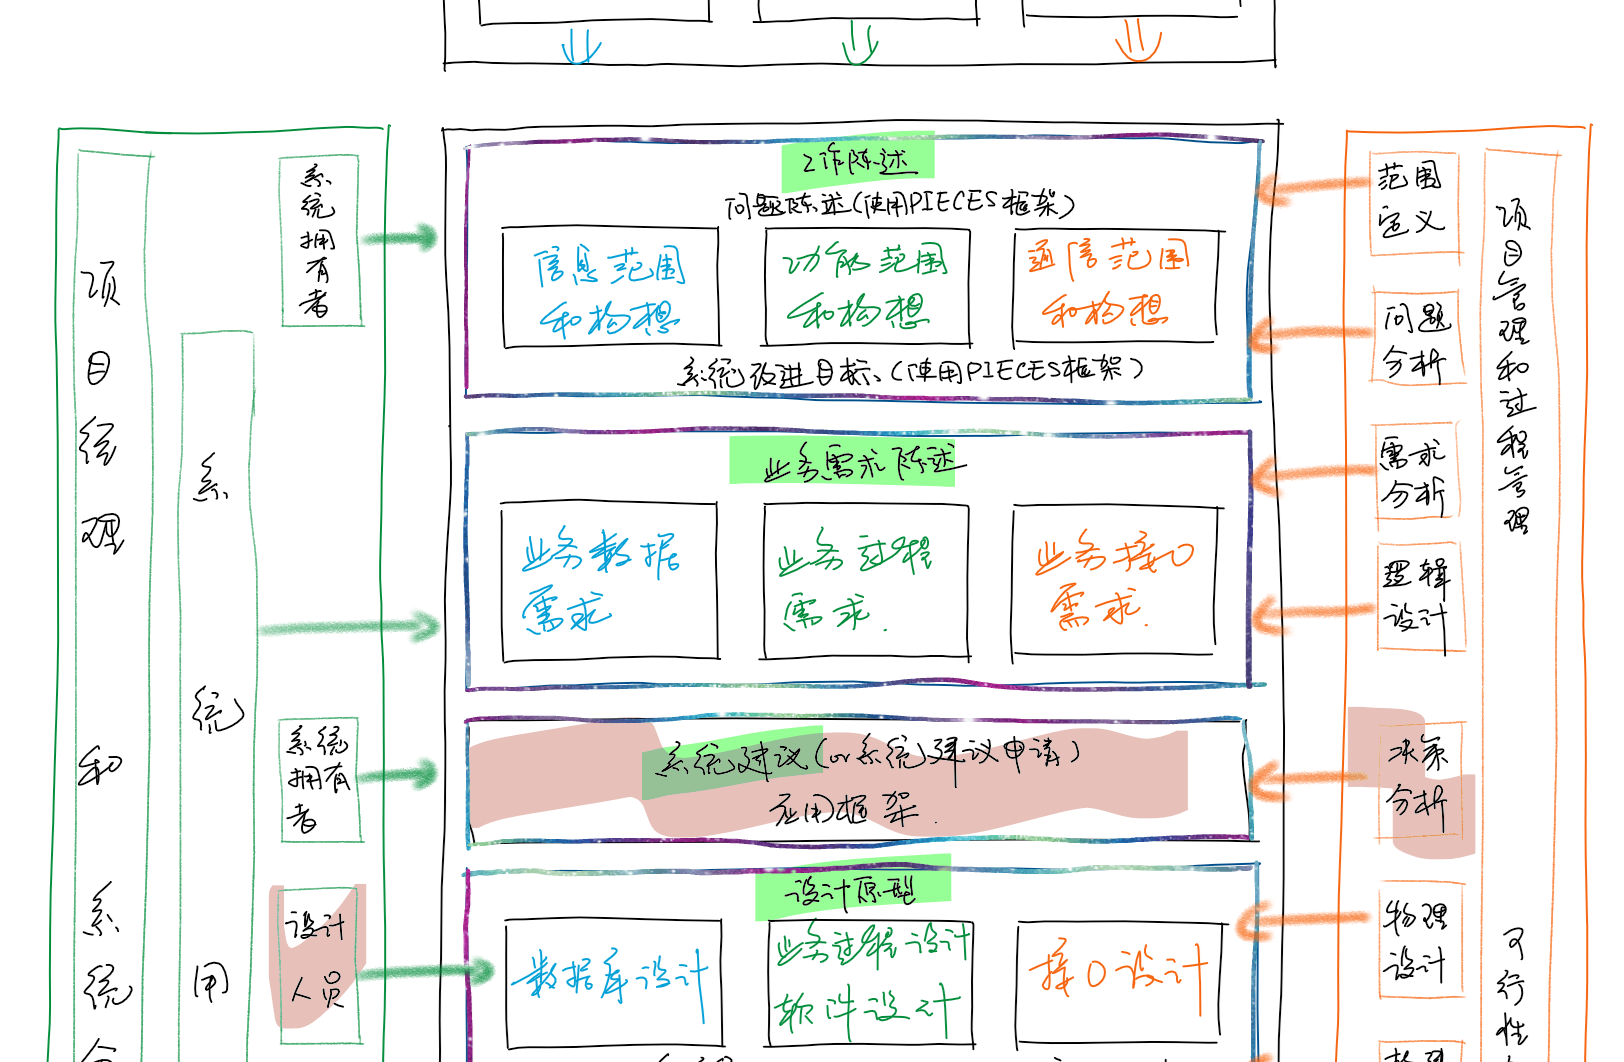 项目经理和系统分
系统用
系统拥有者
系统拥有者
设计
人员
工作陈述
问题陈述(使用PIECES框架)
信息范围
和构想
功能范围
和构想
通信范围
和构想
系统改进目标、(使用PIECES框架)
业务需求陈述
业务数据
需求
业务过程
需求.
业务接口
需求.
系统建议(or系统建议申请)
应用框架.
设计原型
数据库设计
业务过程设计
软件设计
接口设计
范围
定义
问题
分析
需求
分析
逻辑
设计
决策
分析
物理
设计
项目管理和过程管理
可行性